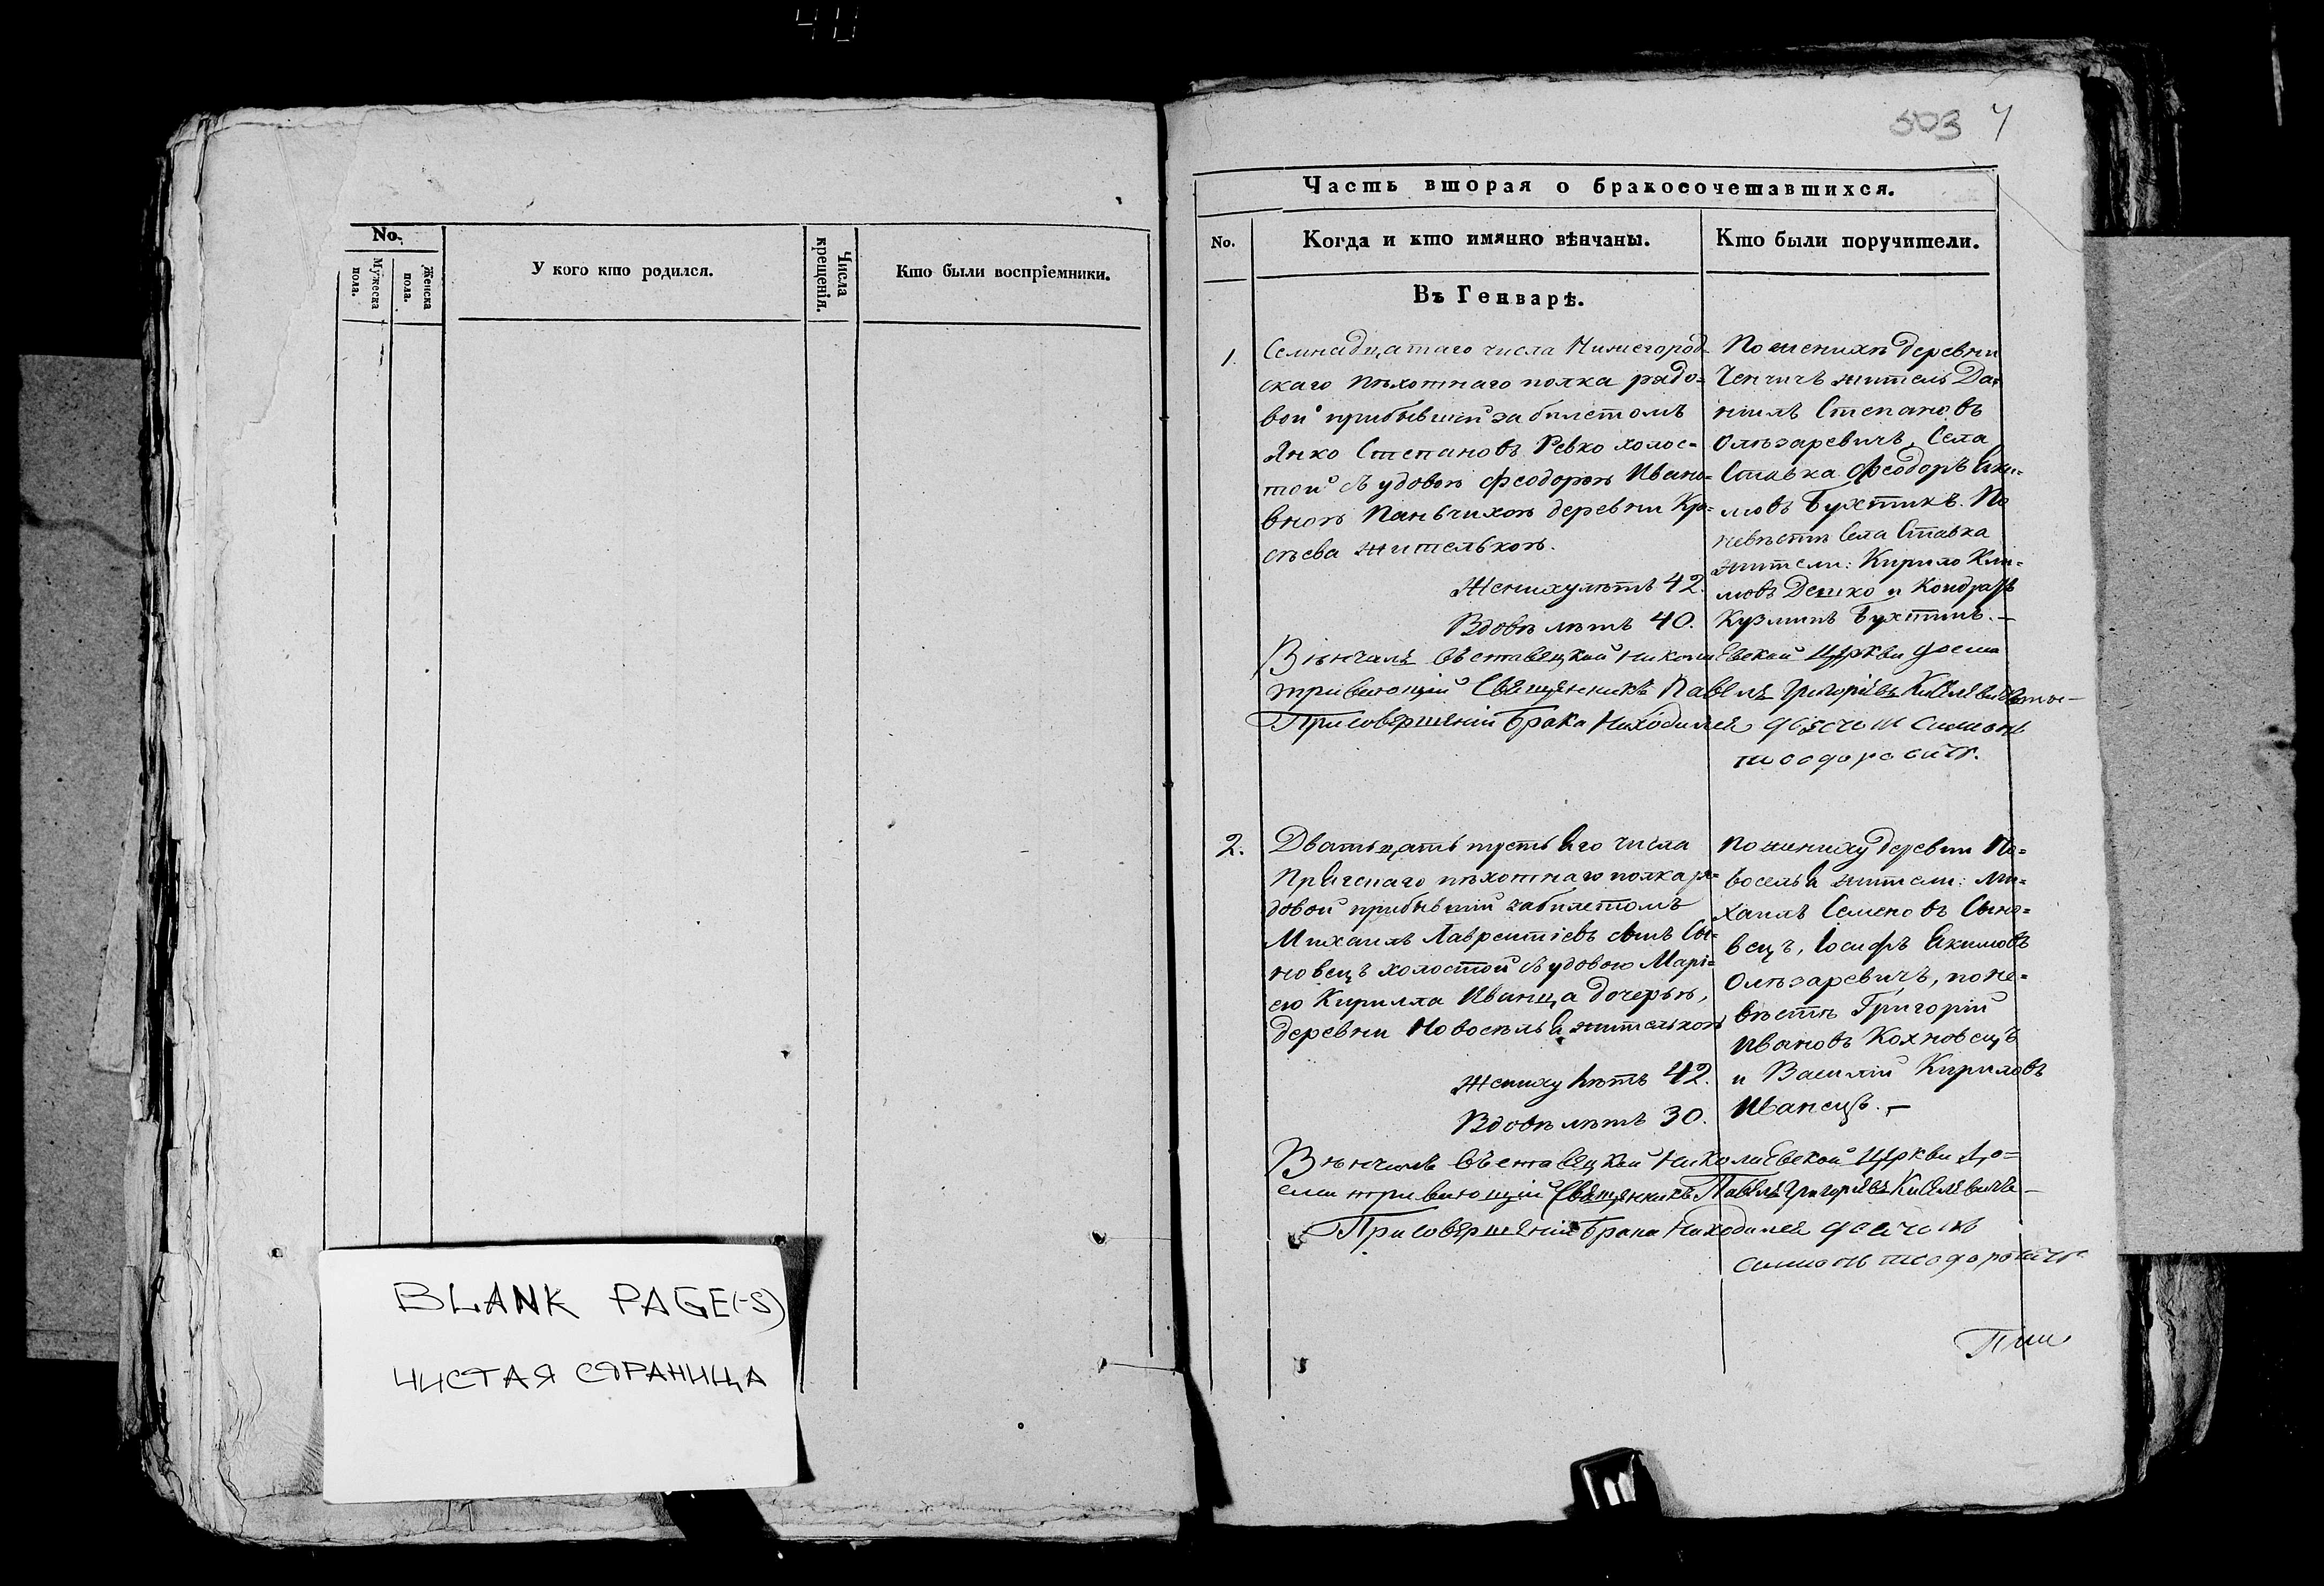 No.
Мужеска пола.
Женска пола.
У кого кто родился.
Числа крещенія.
Кто были воспріемники.
BLANK PAGE(-S)
ЧИСТАЯ СТРАНИЦА
503 7
Часть вторая о бракосочетавшихся.
No.
Когда и кто имянно вѣнчаны.
Кто были поручители.
Въ Генварѣ.
1.
Семнадцатаго числа Нижегород-
скаго пѣхотнаго полка рядо-
вой прибывшій за билетомъ
Янко Степановъ Ревко холос-
той съ удовою Феодорою Ивано-
вною деревни
жителькою.
Жениху лѣтъ 42.
Вдовѣ лѣтъ 40.
По женихѣ деревни
житель Да-
ніилъ Степановъ
Олѣзаревичъ, Села
Ставка Феодоръ Яки-
мовъ Бухтикъ. По
невѣстѣ Села Ставка
жители: Кирило Кли-
мовъ Демко и Кондратъ
Кузминъ
Вѣнчалъ въ Ставецкой Николаевской Церкви досма
тривающій Священникъ Павелъ Григоріевъ
При совершеніи брака Находился дьячокъ Симонъ
2.
Дватьцать третьяго числа
пѣхотнаго полка ря-
довой прибывшій за билетомъ
Михаилъ Лаврентіевъ сынъ Сы-
новецъ холостой съ удовою Марі-
ею Кирилла Иванца дочерью,
деревни Новоселья жителькою
Жениху лѣтъ 42.
Вдовѣ лѣтъ 30.
По жениху деревни Но-
воселья жители: Ми-
хаилъ Семеновъ Сыно-
вецъ, Іосифъ Якимовъ
Олѣзаревичъ, по не-
вѣстѣ Григорій
Ивановъ Кохновецъ
и Василій Кириловъ
Иванецъ.
Вѣнчалъ въ Ставецкой Николаевской Церкви до-
сматривающій Священникъ Павелъ Григоріевъ
При совершеніи брака Находился дьячокъ
Симонъ